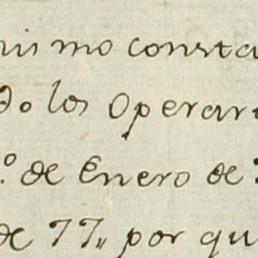 mismo consta
do los Operar
1.º de Enero de
de 77,, por qu